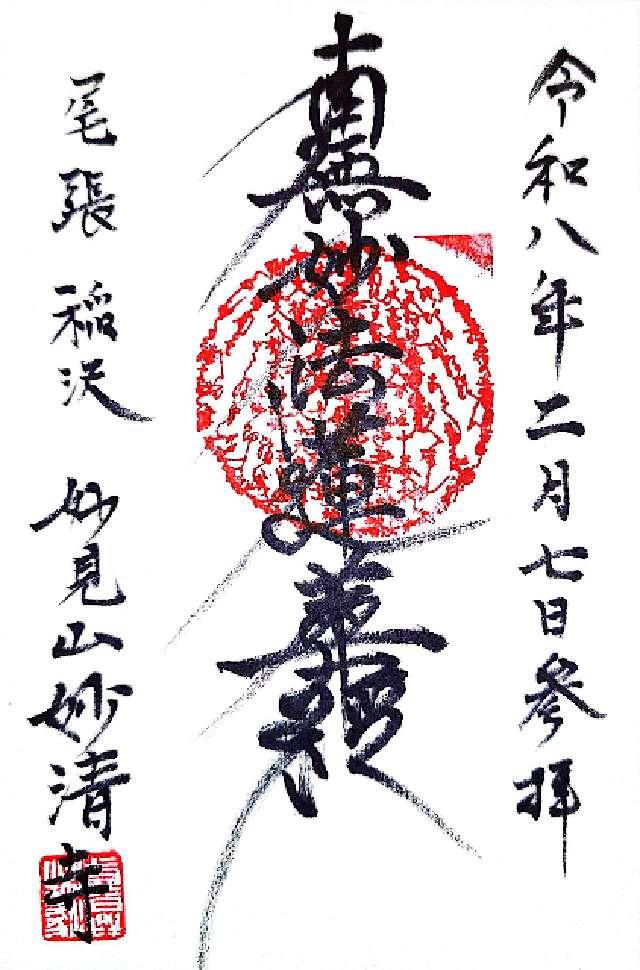 令和八年二月七日参拝
南無妙法蓮華経
尾張 稲沢 妙見山妙清寺